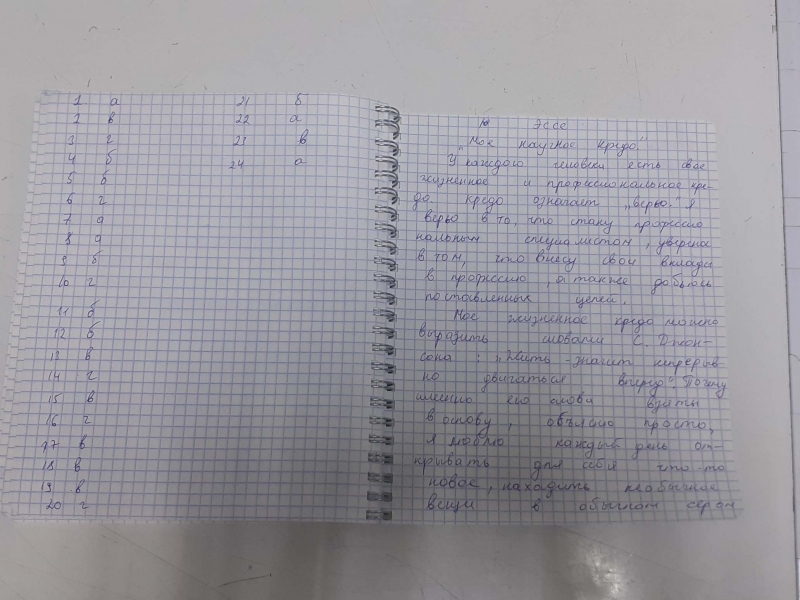 1 а
2 в
3 г
4 б
5 б
6 г
7 а
8 а
9 б
10 г
11 б
12 б
13 в
14 г
15 в
16 г
17 в
18 в
19 в
20 г
21 б
22 а
23 в
24 а
Эссе
"Мое научное кредо."
У каждого человека есть свое
жизненное и профессиональное кре-
до. Кредо означает "верю". Я
верю в то, что стану профессио
нальным специалистом, уверена
в том, что внесу свои вклады
в профессию, а также добьюсь
поставленных целей.
Мое жизненное кредо можно
выразить словами С. Джон-
сона: "Жить - значит непрерыв
но двигаться вперед". Почему
именно его слова взяты
в основу, объясню просто,
я люблю каждый день от-
крывать для себя что-то
новое, находить необычное
вещи в обычном сером